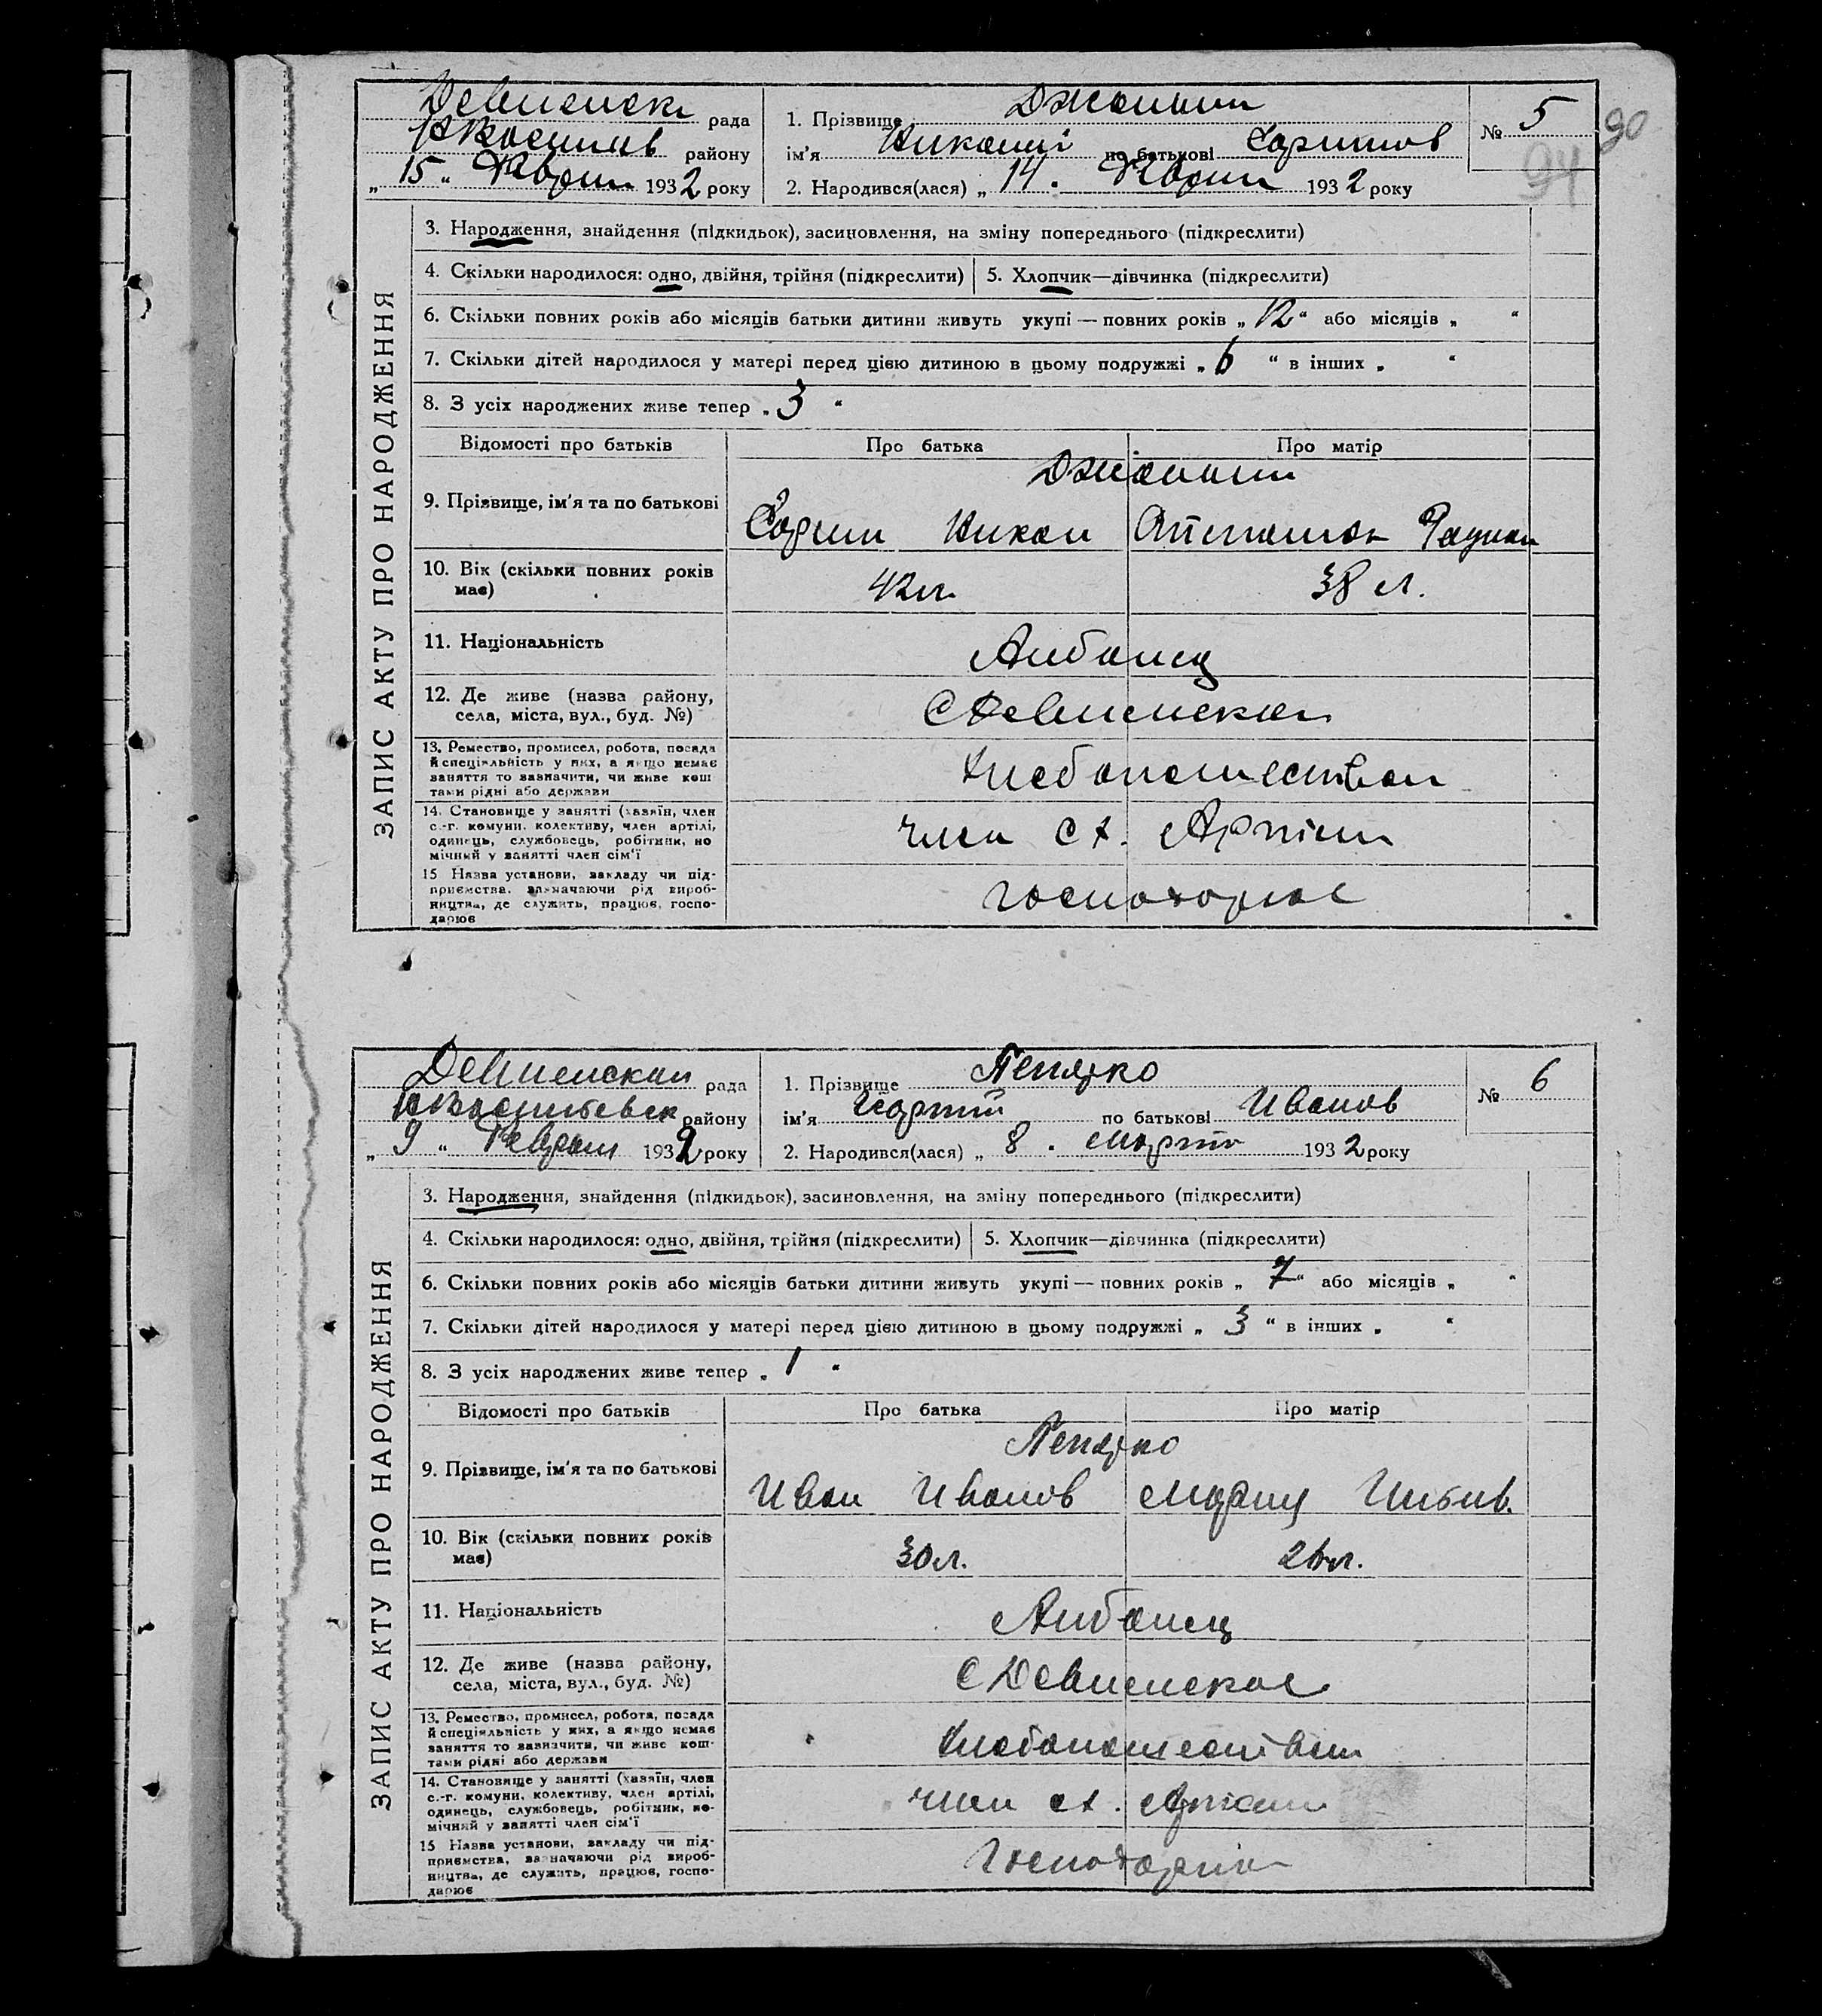 Девненск рада
району
„ 15 “ Феврал 1932 року
1. Прізвище Джолжи
ім'я Николай по батькові
2. Народився(лася) „ 14 . Феврал 1932 року
№ 5
90
94
ЗАПИС АКТУ ПРО НАРОДЖЕННЯ
3. Народження, знайдення (підкидьок), засиновлення, на зміну попереднього (підкреслити)
4. Скільки народилося: одно, двійня, трійня (підкреслити) 5. Хлопчик—дівчинка (підкреслити)
6. Скільки повних років або місяців батьки дитини живуть укупі — повних років „ 12 “ або місяців „ “
7. Скільки дітей народилося у матері перед цією дитиною в цьому подружжі „ 6 “ в інших „ “
8. З усіх народжених живе тепер „ 3 “
Відомості про батьків Про батька Про матір
9. Прізвище, ім'я та по батькові
Никол
10. Вік (скільки повних років має) 42 л. 38 л.
11. Національність Албанец
12. Де живе (назва району, села, міста, вул., буд. №) С Девненская
13. Ремество, промисел, робота, посада й спеціяльність у них, а якщо немає заняття то зазначити, чи живе коштами рідні або держави Хлебопашеством
14. Становище у занятті (хазяїн, член с.-г. комуни, колективу, член артілі, одинець, службовець, робітник, помічний у занятті член сім'ї член сх. Артели
15 Назва установи, закладу чи підприємства, зазначаючи рід виробництва, де служить, працює, господарює господарює
Девненская рада
району
„ 9 “ Феврал 1932 року
1. Прізвище
ім'я по батькові Иванов
2. Народився(лася) „ 8 . Марта 1932 року
№ 6
ЗАПИС АКТУ ПРО НАРОДЖЕННЯ
3. Народження, знайдення (підкидьок), засиновлення, на зміну попереднього (підкреслити)
4. Скільки народилося: одно, двійня, трійня (підкреслити) 5. Хлопчик—дівчинка (підкреслити)
6. Скільки повних років або місяців батьки дитини живуть укупі — повних років „ 7 “ або місяців „ “
7. Скільки дітей народилося у матері перед цією дитиною в цьому подружжі „ 3 “ в інших „ “
8. З усіх народжених живе тепер „ 1 “
Відомості про батьків Про батька Про матір
9. Прізвище, ім'я та по батькові
Иван Иванов Мария
10. Вік (скільки повних років має) 30 л. 26 л.
11. Національність Албанец
12. Де живе (назва району, села, міста, вул., буд. №) С Девненская
13. Ремество, промисел, робота, посада й спеціяльність у них, а якщо немає заняття то зазначити, чи живе коштами рідні або держави Хлебопашеством
14. Становище у занятті (хазяїн, член с.-г. комуни, колективу, член артілі, одинець, службовець, робітник, помічний у занятті член сім'ї член сх. Артели
15 Назва установи, закладу чи підприємства, зазначаючи рід виробництва, де служить, працює, господарює